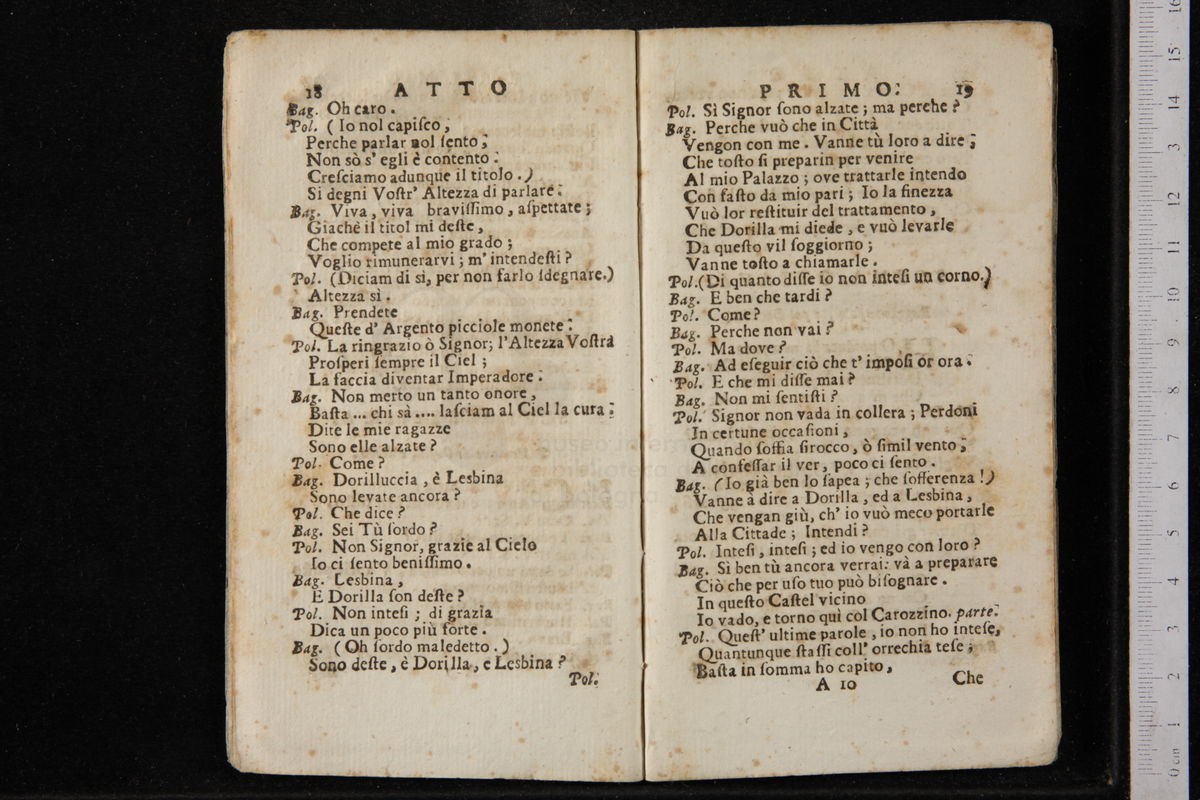 18 ATTO
Bag. Oh caro.
Pol. ( Io nol capiſco,
Perche parlar nol ſento;
Non sò s' egli è contento:
Creſciamo adunque il titolo.)
Si degni Voſtr' Altezza di parlare.
Bag. Viva, viva braviſſimo, aſpettate;
Giachè il titol mi deſte,
Che compete al mio grado;
Voglio rimunerarvi; m' intendeſti?
Pol. (Diciam di sì, per non farlo ſdegnare.)
Altezza sì.
Bag. Prendete
Queſte d' Argento picciole monete:
Pol. La ringrazio ò Signor; l'Altezza Voſtra
Proſperi ſempre il Ciel;
La faccia diventar Imperadore.
Bag. Non merto un tanto onore,
Baſta ... chi sà .... laſciam al Ciel la cura:
Dite le mie ragazze
Sono elle alzate?
Pol. Come?
Bag. Dorilluccia, è Lesbina
Sono levate ancora?
Pol. Che dice?
Bag. Sei Tù ſordo?
Pol. Non Signor, grazie al Cielo
Io ci ſento beniſſimo.
Bag. Lesbina,
E Dorilla ſon deſte?
Pol. Non inteſi; di grazia
Dica un poco più forte.
Bag. ( Oh ſordo maledetto.)
Sono deſte, è Dorilla, e Lesbina?
Pol.
PRIMO. 19
Pol. Sì Signor ſono alzate; ma perche?
Bag. Perche vuò che in Città
Vengon con me. Vanne tù loro a dire;
Che toſto ſi preparin per venire
Al mio Palazzo; ove trattarle intendo
Con faſto da mio pari; Io la finezza
Vuò lor reſtituir del trattamento,
Che Dorilla mi diede, e vuò levarle
Da queſto vil ſoggiorno;
Vanne toſto a chiamarle.
Pol.(Di quanto diſſe io non inteſi un corno.)
Bag. E ben che tardi?
Pol. Come?
Bag. Perche non vai?
Pol. Ma dove?
Bag. Ad eſeguir ciò che t' impoſi or ora.
Pol. E che mi diſſe mai?
Bag. Non mi ſentiſti?
Pol. Signor non vada in collera; Perdoni
In certune occaſioni,
Quando ſoffia ſirocco, ò ſimil vento;
A confeſſar il ver, poco ci ſento.
Bag. (Io già ben lo ſapea; che ſofferenza!)
Vanne à dire a Dorilla, ed a Lesbina,
Che vengan giù, ch' io vuò meco portarle
Alla Cittade; Intendi?
Pol. Inteſi, inteſi; ed io vengo con loro?
Bag. Sì ben tù ancora verrai: và a preparare
Ciò che per uſo tuo può biſognare.
In queſto Caſtel vicino
Io vado, e torno quì col Carozzino. parte.
Pol. Queſt' ultime parole, io non ho inteſe,
Quantunque ſtaſſi coll' orrechia teſe;
Baſta in ſomma ho capito,
A 10 Che